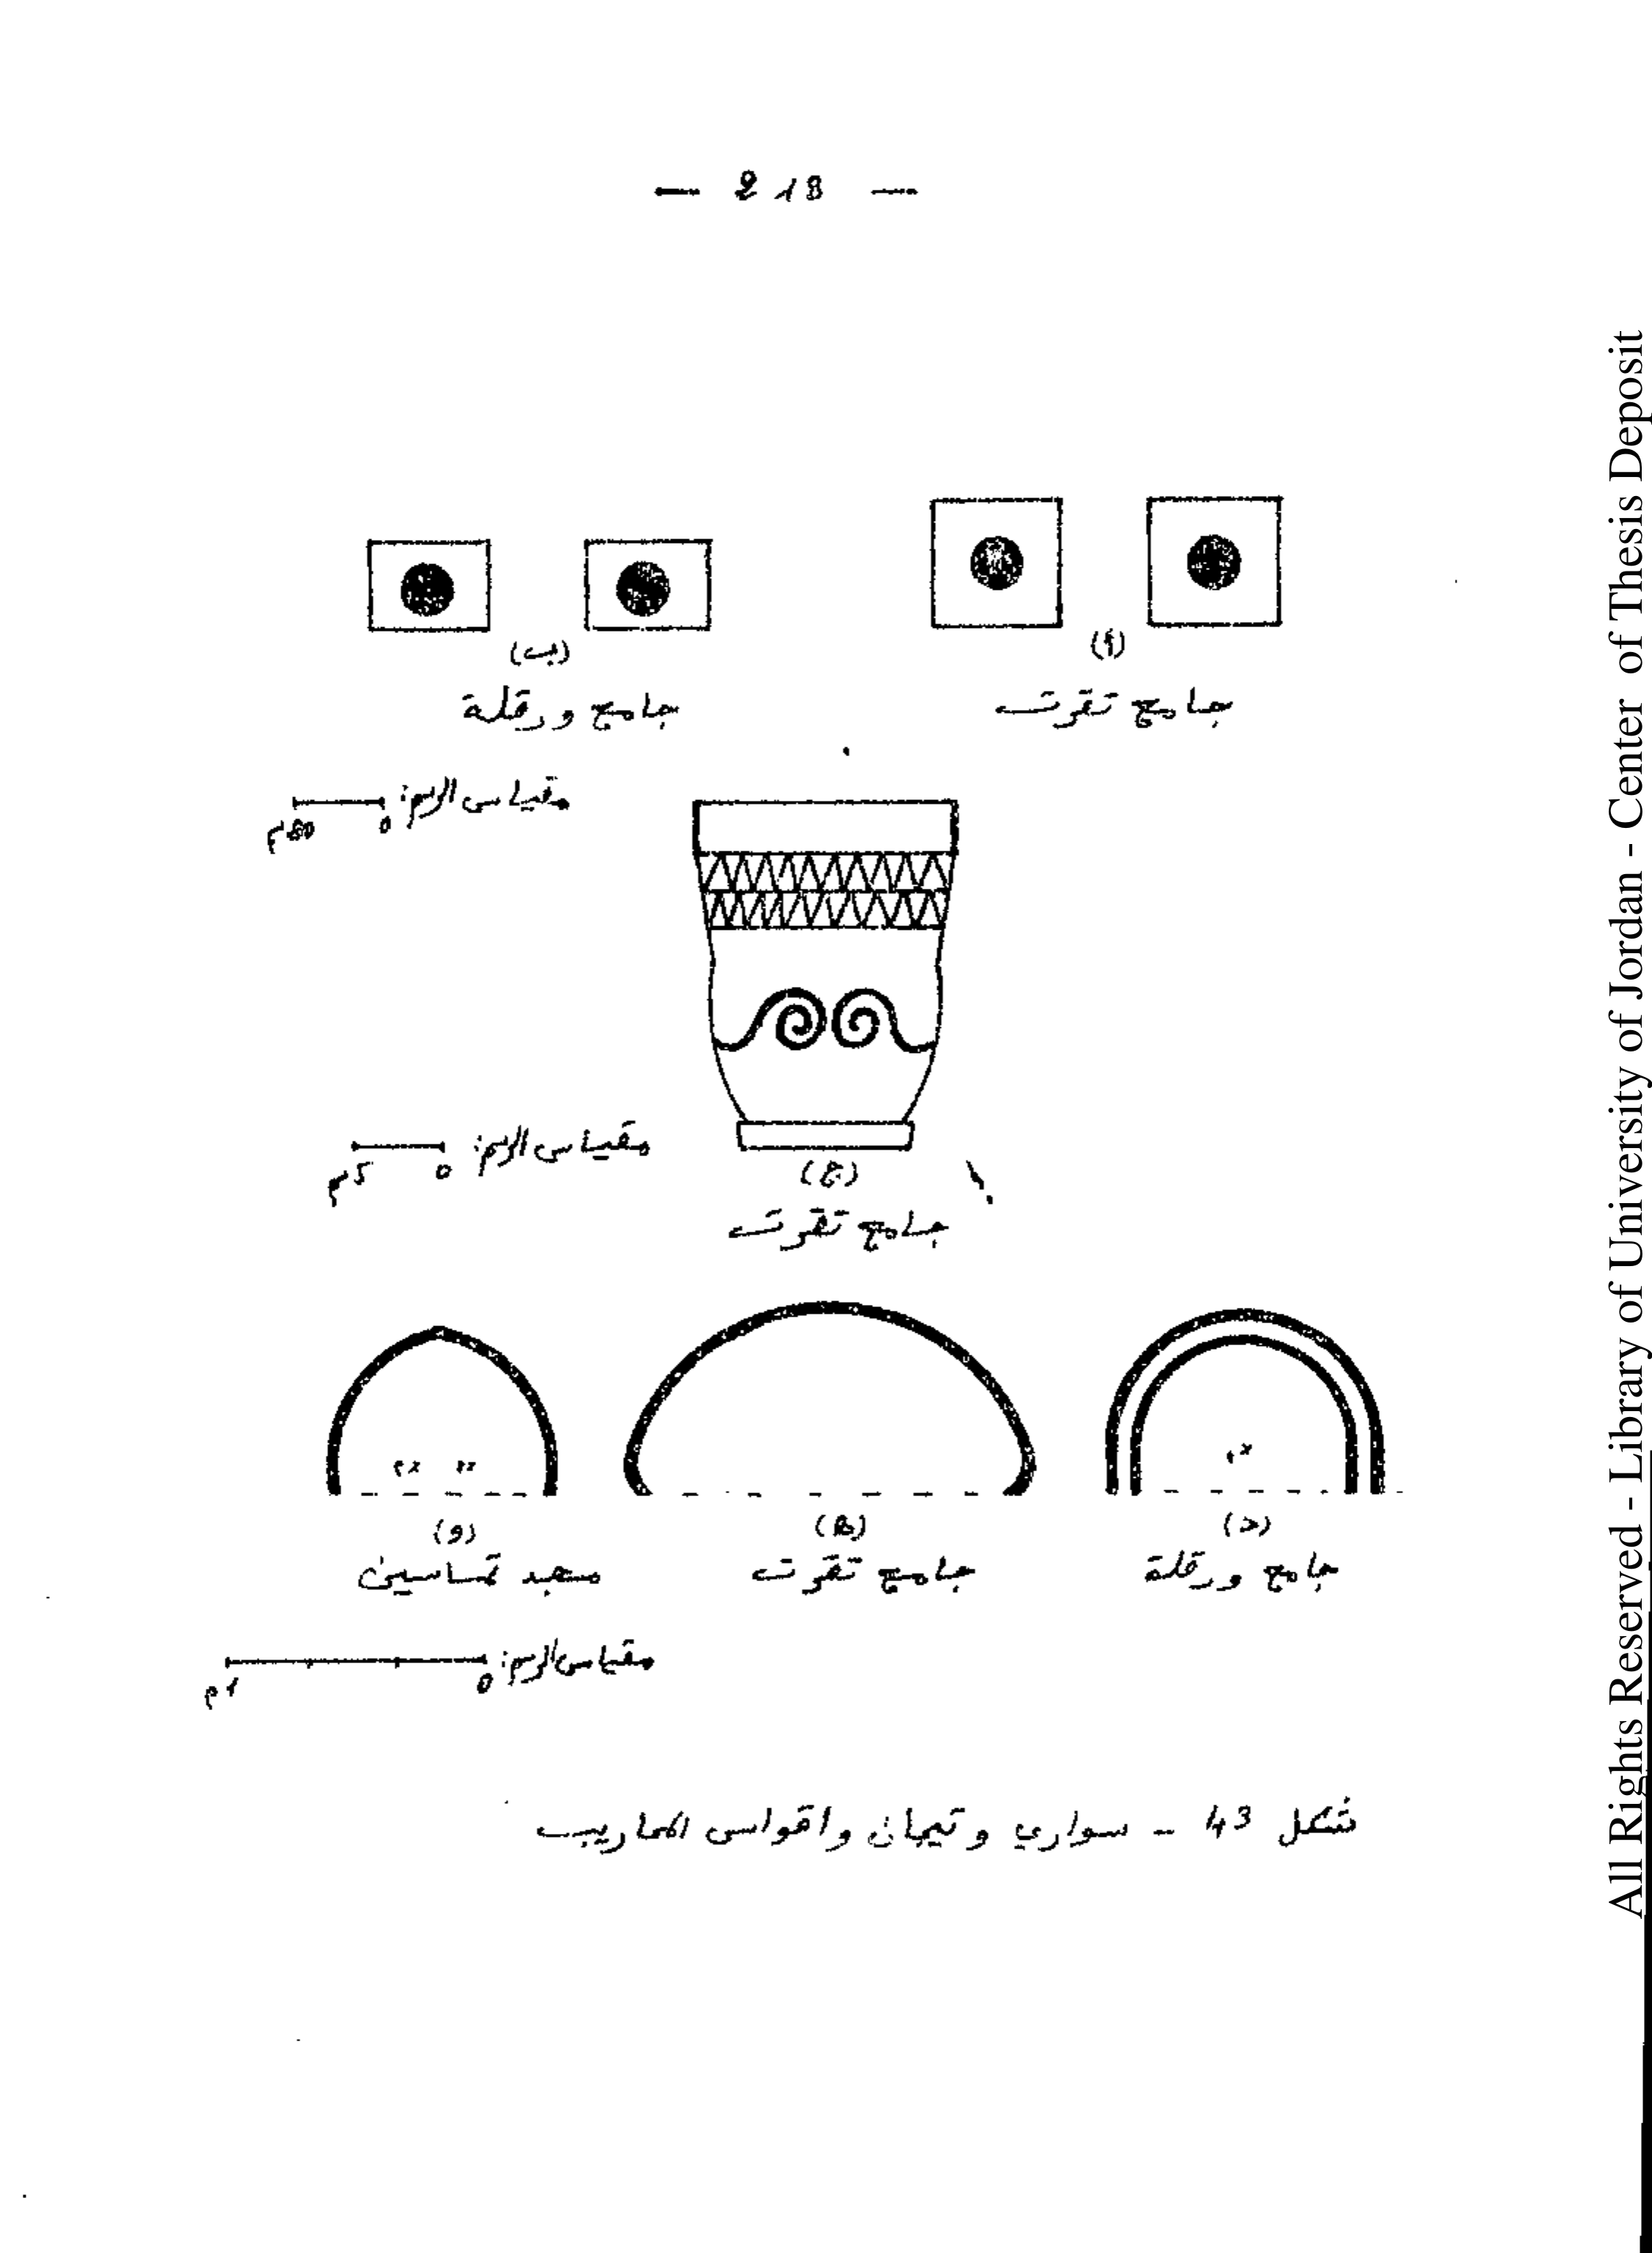 — 218 —
(أ)
(ب)
جامع تقرت
جامع ورقلة
مقياس الرسم:
0
مقياس الرسم:
0
5م
(ج)
جامع تقرت
(د)
(ه)
(و)
جامع ورقلة
جامع تقرت
مسجد تماسين
مقياس الرسم:
0
1م
شكل 43 - سواري وتيجان واقواس المحاريب
All Rights Reserved - Library of University of Jordan - Center of Thesis Deposit